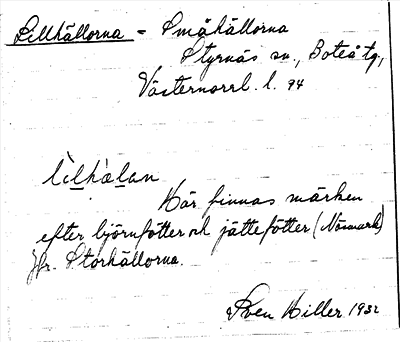 Lillhällorna = Småhällorna
Styrnäs sn., Boteå tg.,
Västernorrl. l. 94
lìlhàlan
Här finnas märken
efter björnfötter och jättefötter (Näsmark)
Jfr. Storhällorna.
Sven Hiller 1932